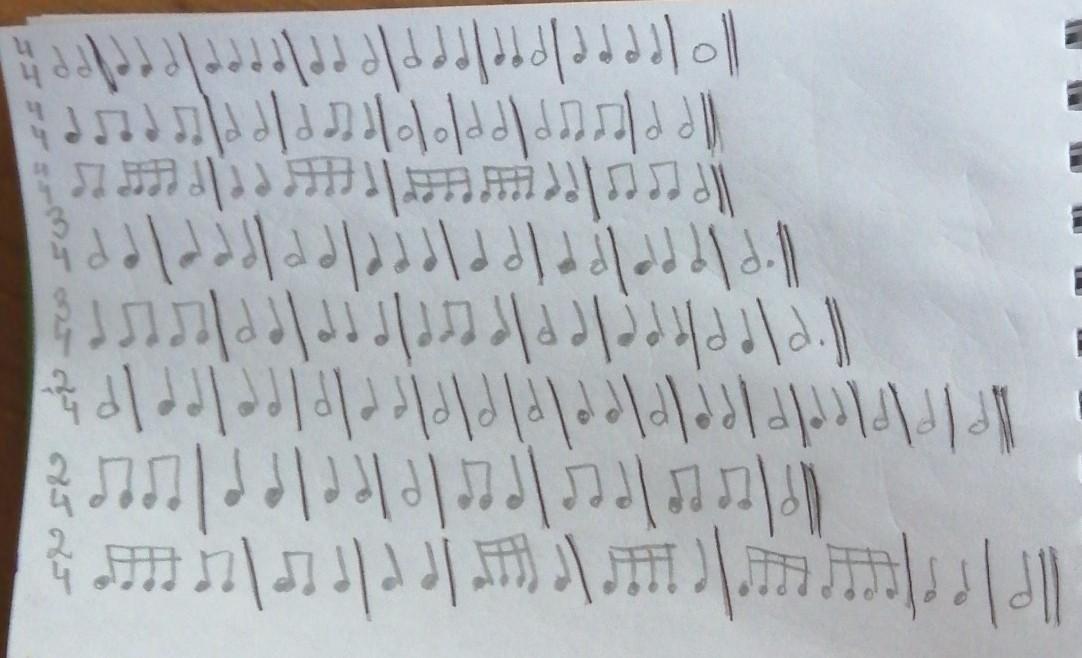 4
4
4
4
4
4
3
4
3
4
2
4
2
4
2
4